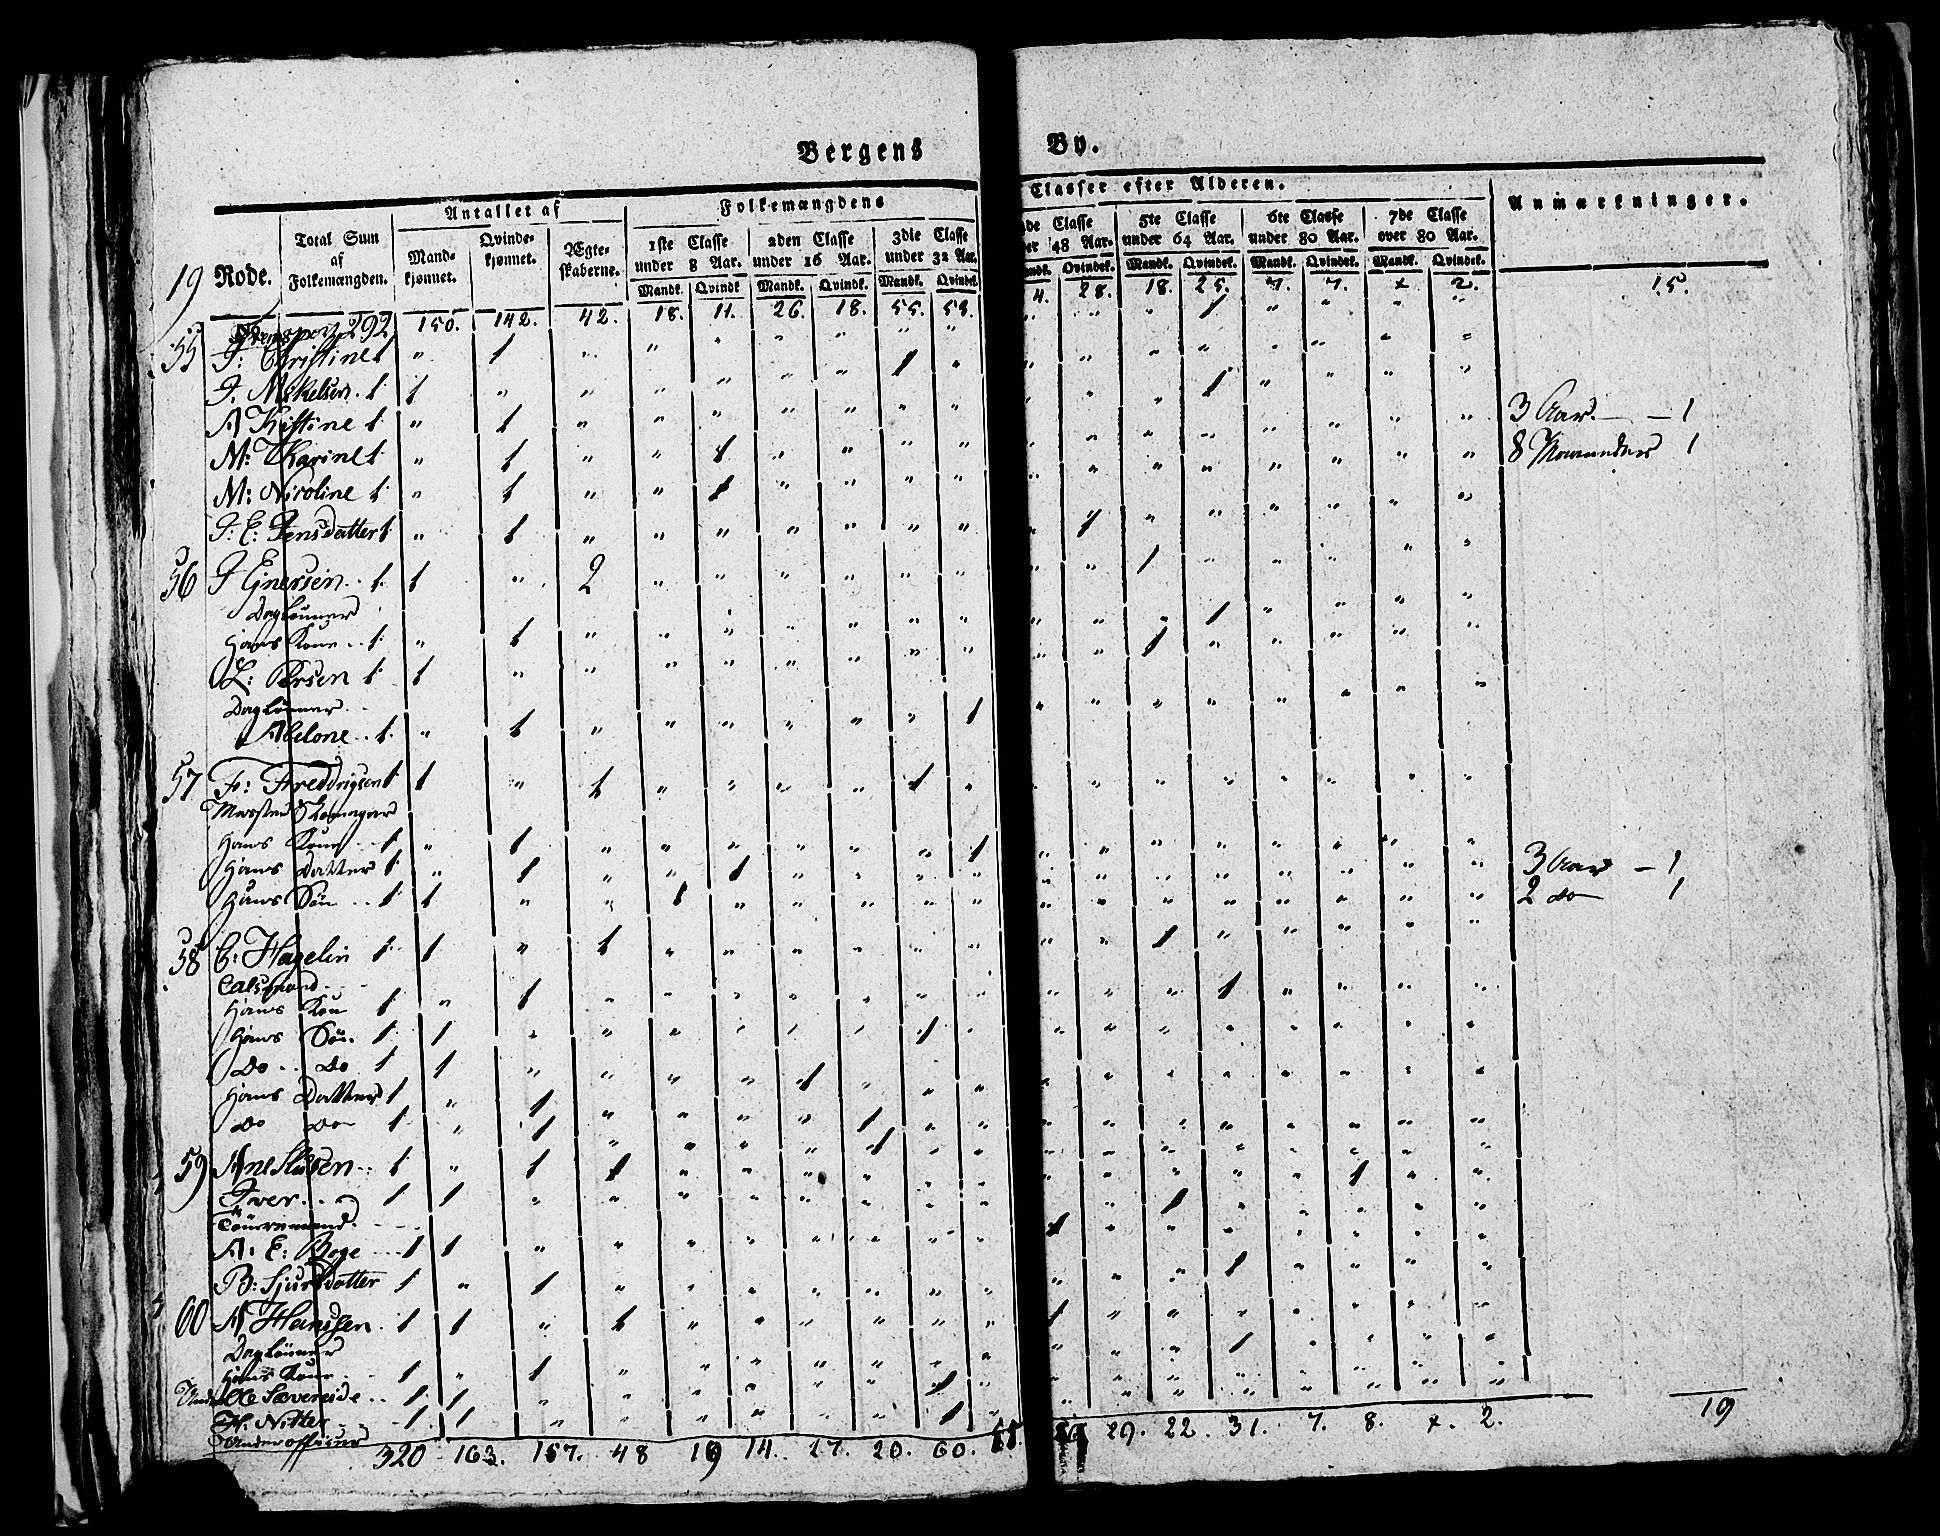 Bergens By.
19
Rode.
Total Sum af Folkemængden.
Antallet af
Mandkjønnet.
Qvindekjønnet.
Ægteskaberne.
Folkemængdens Classer efter Alderen.
1ste Classe under 8 Aar.
2den Classe under 16 Aar.
3die Classe under 32 Aar.
de Classe er 48 Aar.
5te Classe under 64 Aar.
6te Classe under 80 Aar.
7de Classe over 80 Aar.
Anmærkninger.
Mandk. Qvindk Mandk. Qvindk. Mandk. Qvindek. andk. Qvindek. Mandk. Qvindek. Mandk. Qvindek. Mandk. Qvindek.
Transport 292 150. 142. 42. 18. 11. 26. 18. 55. 53. 4. 28. 18. 25. 7. 7. 2. 15.
55 J: Christine 1 " 1 " 1
J. Mikelsen. 1 1 " 1
A Kristine 1 " 1 " 1
M: Karine 1 " 1 " 1 3 Aar. - 1
M: Nicoline 1 " 1 " 1 8 Maaneder 1
J: E: Jensdatter 1 " 1 " 1
56 J Ejnersen. 1. 1 " 2 1
Daglønner
Hans Kone .. 1. " 1 " 1
L: Persen 1. 1 " " 1
Daglønner.
Abelone .. 1. " 1 " 1
57 F: Fredrigsen 1 1 " 1 1
Mæster Skomager
Hans Kone 1 " 1 " 1
Hans Datter 1 " 1 " 1 3 Aar - 1
Hans Søn .. 1 1 " " 1 2 do 1
58 C: Hagelin 1. 1 " 1 1
Hans Kon 1. " 1 " 1
Hans Søn. 1. 1 " " 1
Do .. Do. 1 1 " " 1
Hans Datter 1 " 1 " 1
Do Do 1. " 1 " 1
59 1. " 1 1 1
Iver 1 1 " " 1
A: E: Boge 1 1 " " 1
B: Sjursdatter 1 " 1 " 1
60 A Hanssen. 1 1 " 1 1
Daglønner
Hans Kone 1 " 1 " 1
Sævereide .. 1. 1 1
H. Nitter 1. 1 " " 1
Underofficeer
320 163. 157. 48 19 14. 27. 20. 60. 29. 22. 31. 7. 8. 2. 19